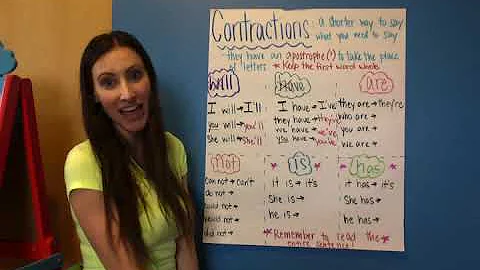 Contractions: a shorter way to say
what you need to say
they have an apostrophe (') to take the place
of letters. * Keep the first word whole.
will
I will → I'll
you will → you'll
she will → she'll
have
I have → I've
they have → they've
we have → we've
you have → you've
are
they are → they're
who are →
you are →
we are →
not
can not → can't
do not →
would not →
did not →
is
it is → it's
she is →
he is →
has
it has → it's
she has →
he has →
* Remember to read the
entire sentence!